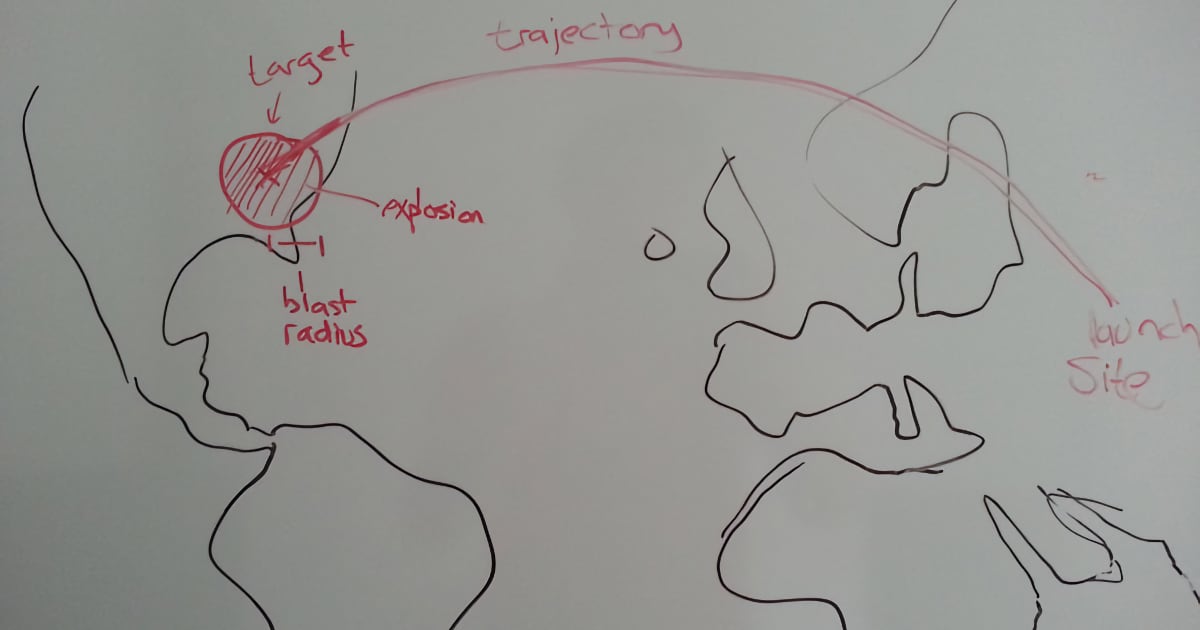 trajectory
target
explosion
blast
radius
launch
Site